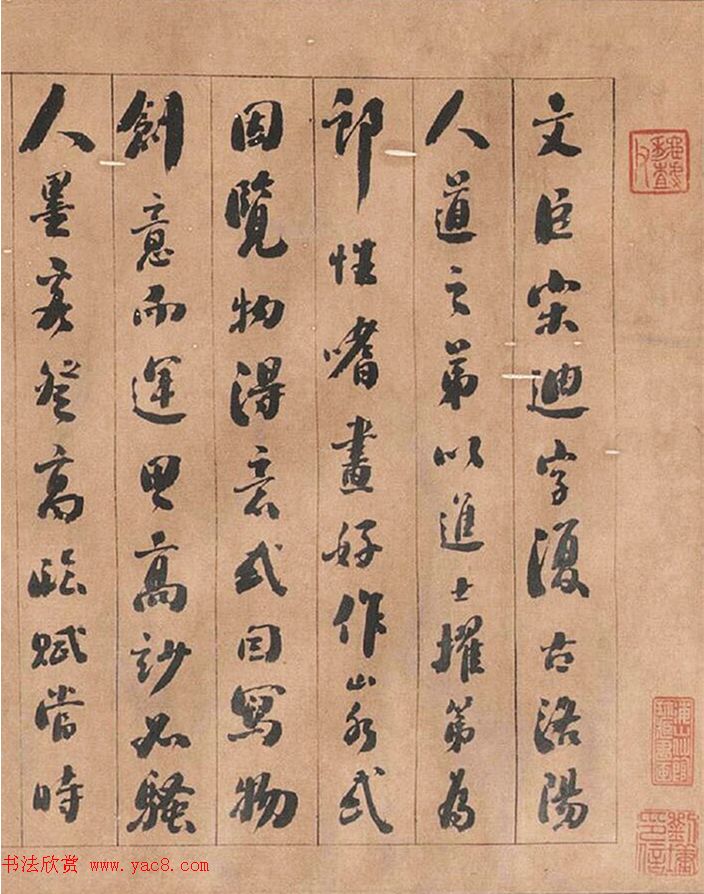 文臣宋迪字復古洛陽
人道之弟以進士擢第為
郎性嗜畫好作山水或
因覽物得意或因寫物
創意而運思高妙如騷
人墨客登高臨賦當時
书法欣赏 www.yac8.com